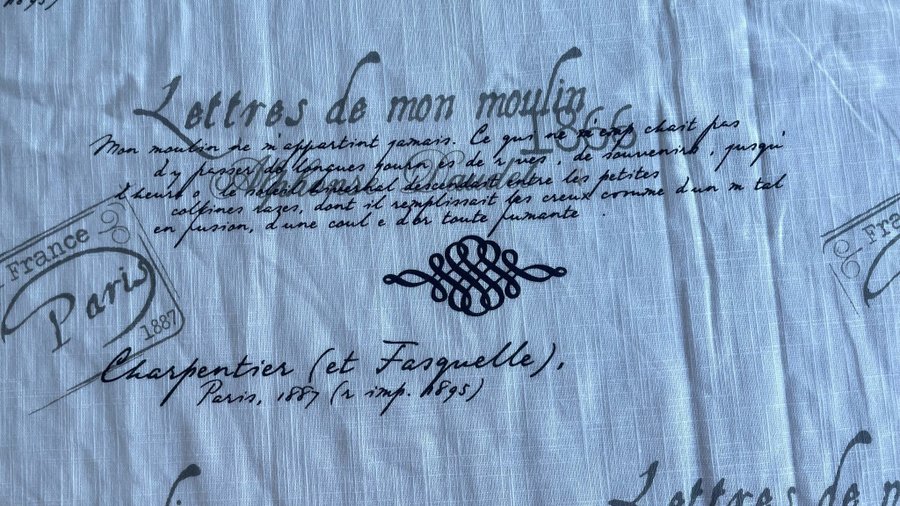 n895)
Lettres de mon moulin
1866
Alphonse Daudet
Mon moulin ne m'appartint jamais. Ce qui ne m'emp chait pas
d'y passer de longues journ es de r ves, de souvenirs, jusqu'
l'heure o le soleil hivernal descendait entre les petites
collines razes, dont il remplissait les creux comme d'un m tal
en fusion, d'une coul e d'or toute fumante .
France
Paris
1887
Fra
Charpentier (et Fasquelle),
Paris, 1887 (r imp. n895)
Lettres de m